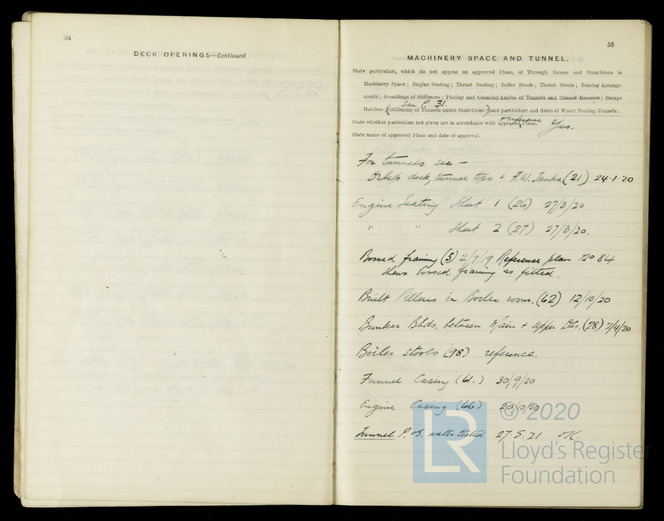 54
DECK OPENINGS—Continued
55
MACHINERY SPACE AND TUNNEL.
State particulars, which do not appear on approved Plans, of Through Beams and Stanchions in
Machinery Space; Engine Seating; Thrust Seating; Boiler Stools; Thrust Stools; Boxing Arrange-
ments; Scantlings of Stiffeners; Plating and Coaming Angles of Tunnels and Tunnel Recesses; Escape
See P. 31
Hatches (Stiffening of Tunnels under Stanchions) and particulars and dates of Water Testing Tunnels.
reference
State whether particulars not given are in accordance with approved Plans. Yes.
State name of approved Plans and date of approval.
For tunnels see —
Orlop deck, tunnel tops & F.W. Tanks (21) 24.1.20
Engine Seating Sheet 1 (26) 27/3/20
" " Sheet 2 (27) 27/3/20.
Bossed framing (5) 2/7/19 Reference plan 120 84
shews bossed framing as fitted
Built Pillars in Boiler room. (62) 12/10/20
Bunker Bhds. between Main & Upper Dks. (78) 7/9/20
Boiler Stools (98) reference.
Funnel Casing (61.) 30/9/20
Engine Casing (66) 20/10/20
Tunnel P. S. water tested 27.5.21
LR
© 2020
Lloyd's Register
Foundation